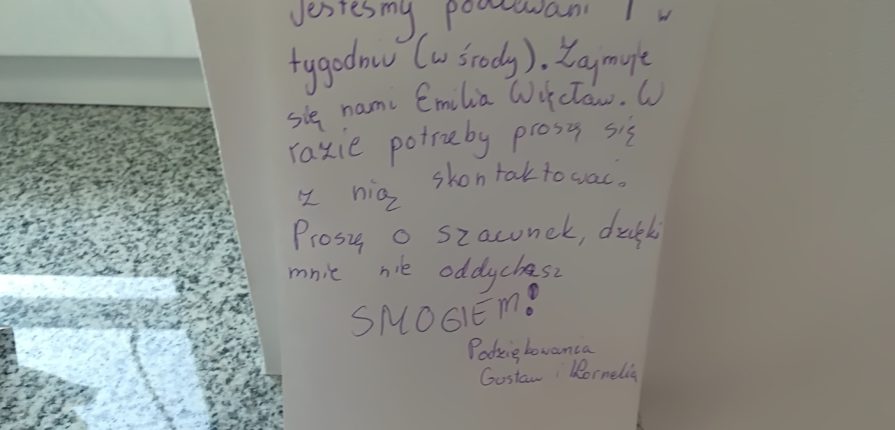 Jesteśmy podlewani 1 w
tygodniu (w środy). Zajmuje
się nami Emilia Więcław. W
razie potrzeby proszę się
z nią skontaktować.
Proszę o szacunek, dzięki
mnie nie oddychasz
SMOGIEM!
Podziękowania
Gustaw i Kornelia